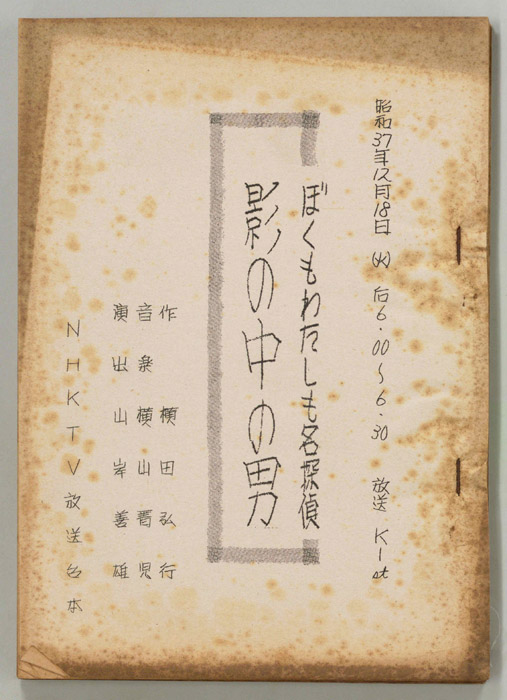 昭和37年12月18日(火) 后6.00〜6.30 放送 K-1st
ぼくもわたしも名探偵
影の中の男
作 横田弘行
音楽 横山菁児
演出 山岸善雄
NHKTV放送台本